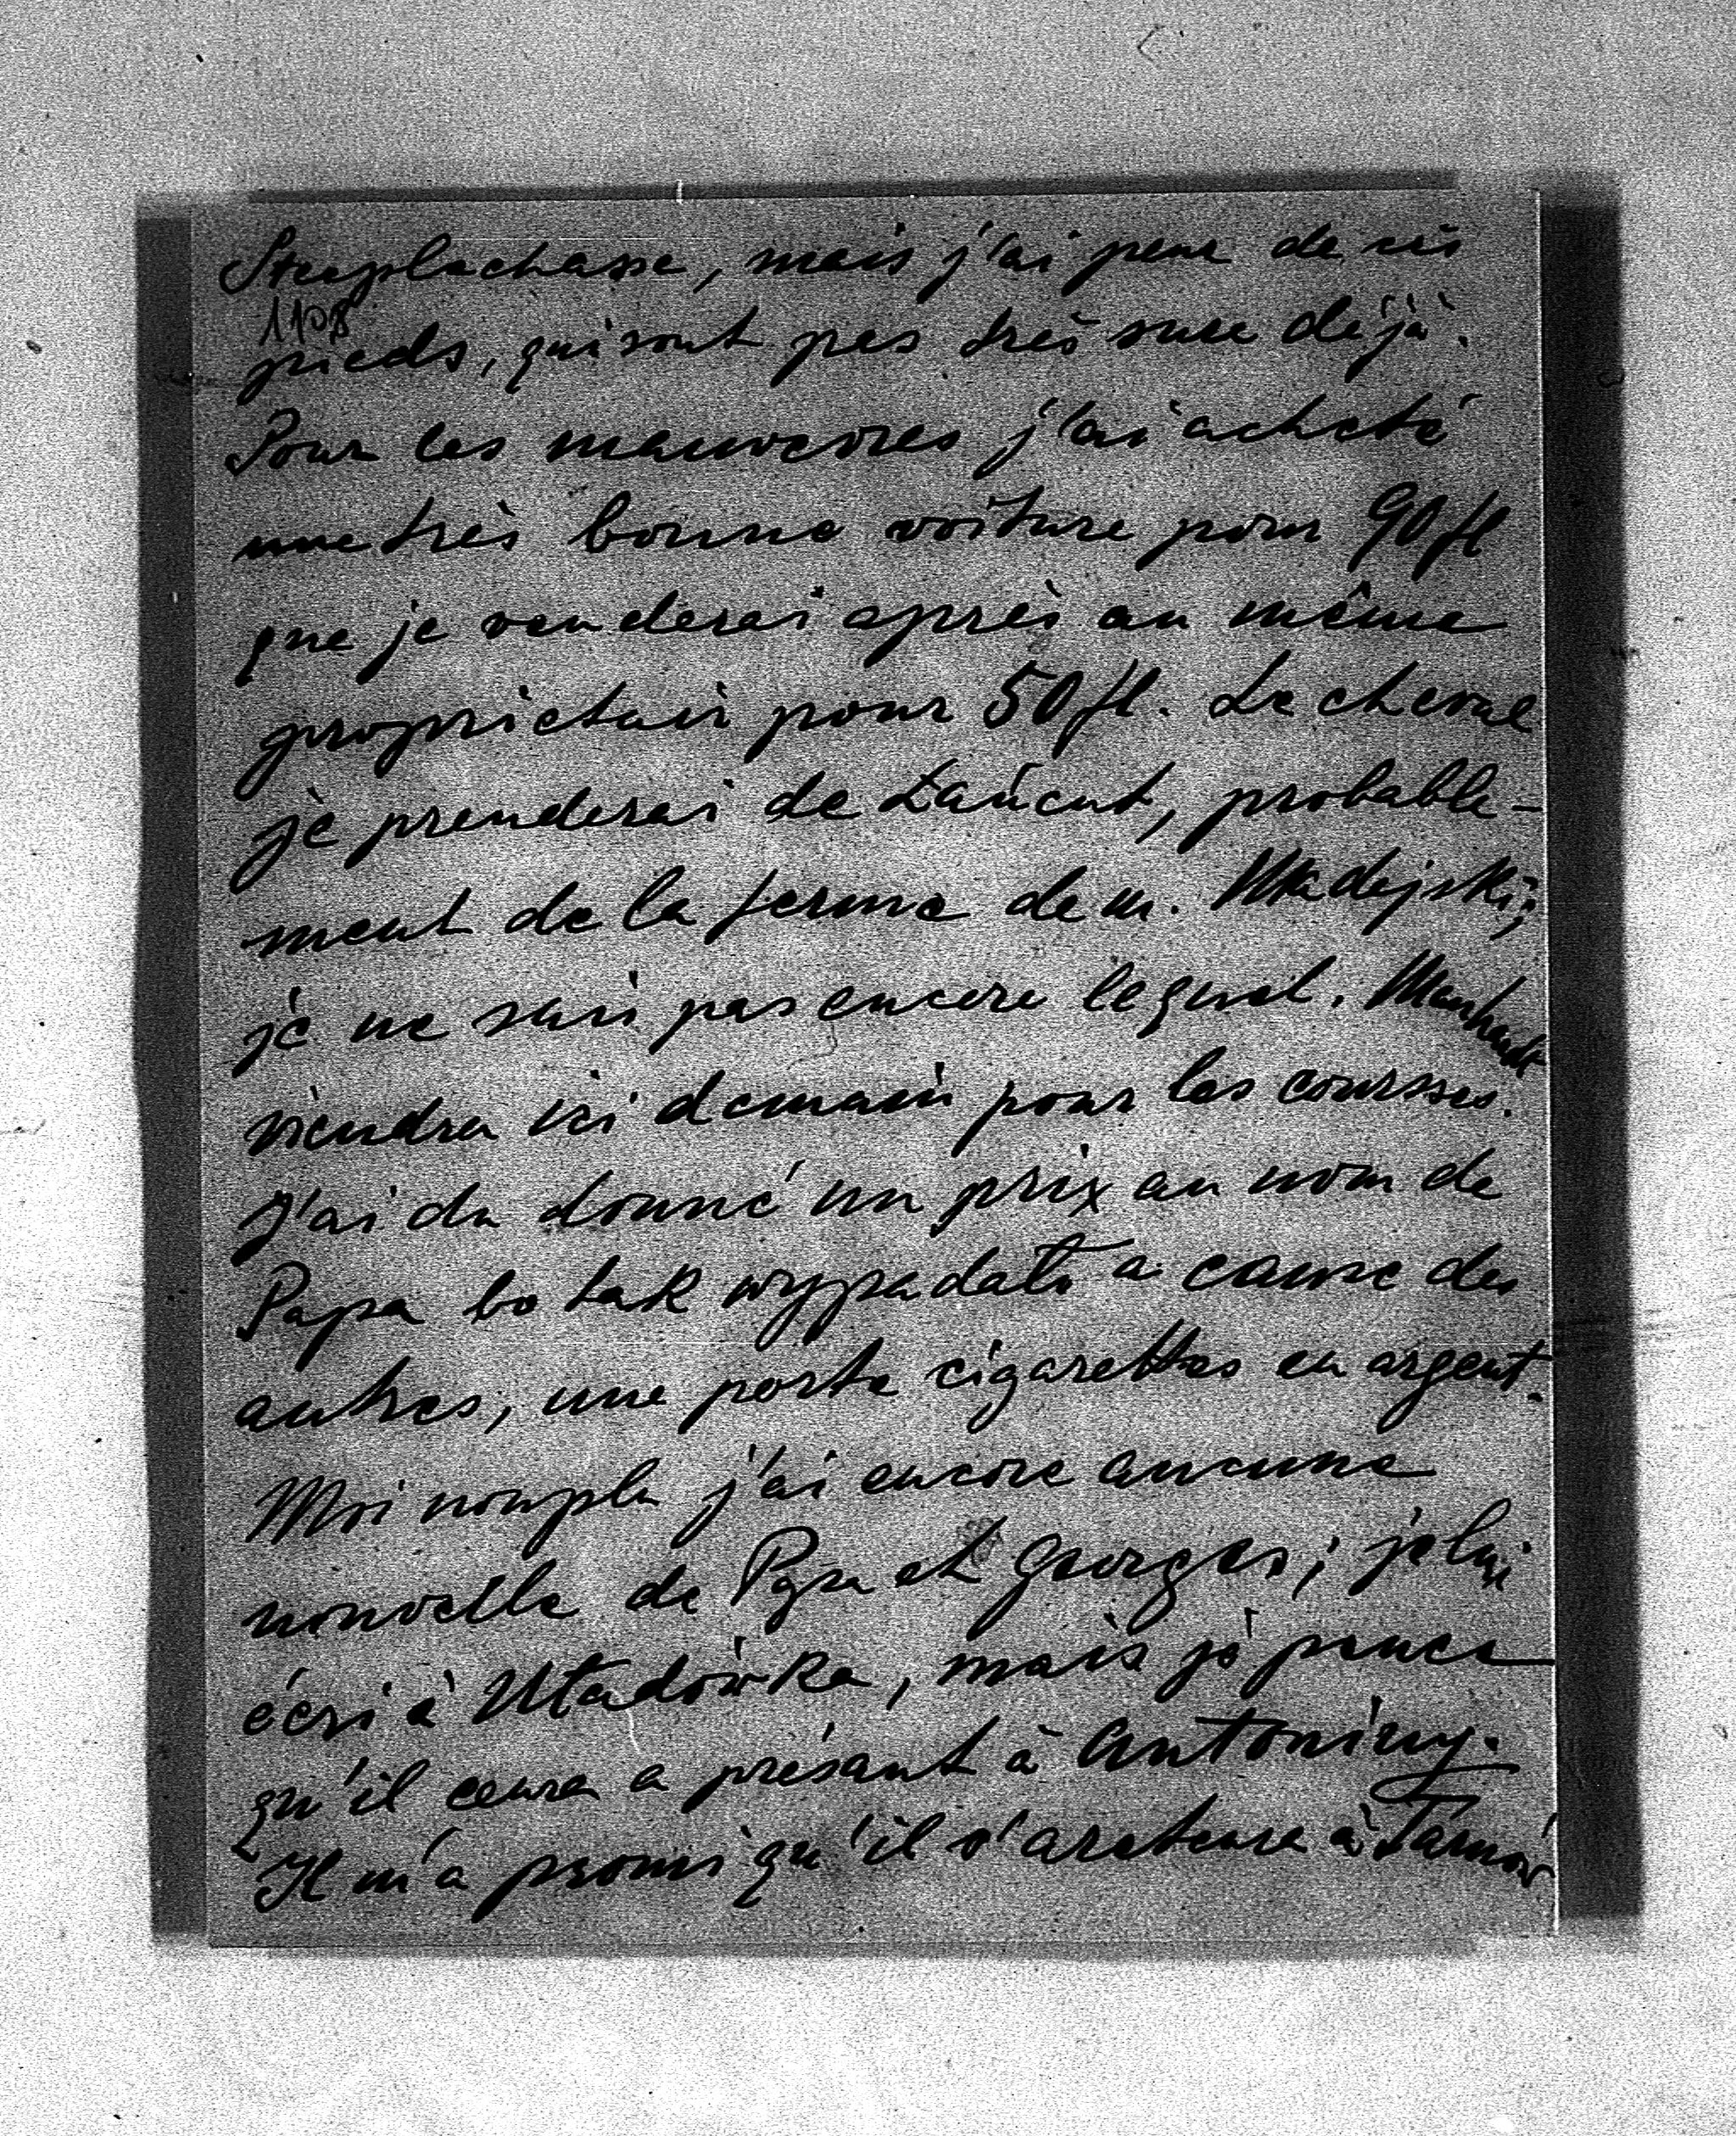 Steeplechasse, mais j'ai peur de ces
1108
pieds, qui sont pas très sure déjà.
Pour les manuvres j'ai acheté
une très bonne voiture pour 90 fl
que je venderai après au même
proprietair pour 50 fl. Le cheval
je prenderai de Łańcut, probable-
ment de la ferme de m. Madejski;
je ne sais pas encore lequel.
viendra ici demain pour les coursses.
J'ai du donné un prix au nom de
Papa bo tak wypadało a cause des
autres, une porte cigarettes en argent.
Moi nonplu j'ai encore aucune
nouvelle de Papa et Georges; je lui
écri à Władówka, mais je pence
qu'il a présant à Antoniny.
Il m'a promi qu'il s'aretera à Tarnów